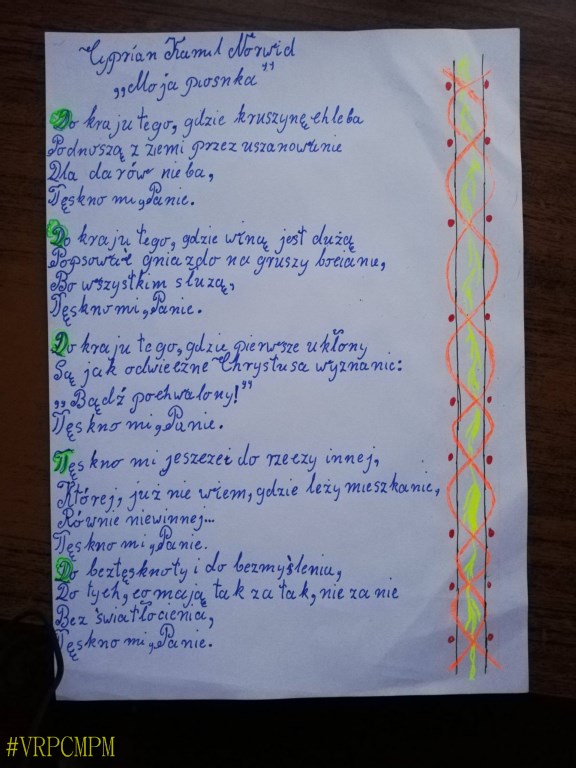 Cyprian Kamil Norwid
„Moja piosnka”
Do kraju tego, gdzie kruszynę chleba
Podnoszą z ziemi przez uszanowanie
Dla darów nieba,
Tęskno mi, Panie.
Do kraju tego, gdzie winą jest dużą
Popsować gniazdo na gruszy bocianie,
Bo wszystkim służą,
Tęskno mi, Panie.
Do kraju tego, gdzie pierwsze ukłony
Są jak odwieczne Chrystusa wyznanie:
„Bądź pochwalony!”
Tęskno mi, Panie.
Tęskno mi jeszcze i do rzeczy innej,
Której, już nie wiem, gdzie leży mieszkanie,
Równie niewinnej...
Tęskno mi, Panie.
Do beztęsknoty i do bezmyślenia,
Do tych, co mają tak za tak, nie za nie
Bez światłocienia,
Tęskno mi, Panie.
#VRPCMPM